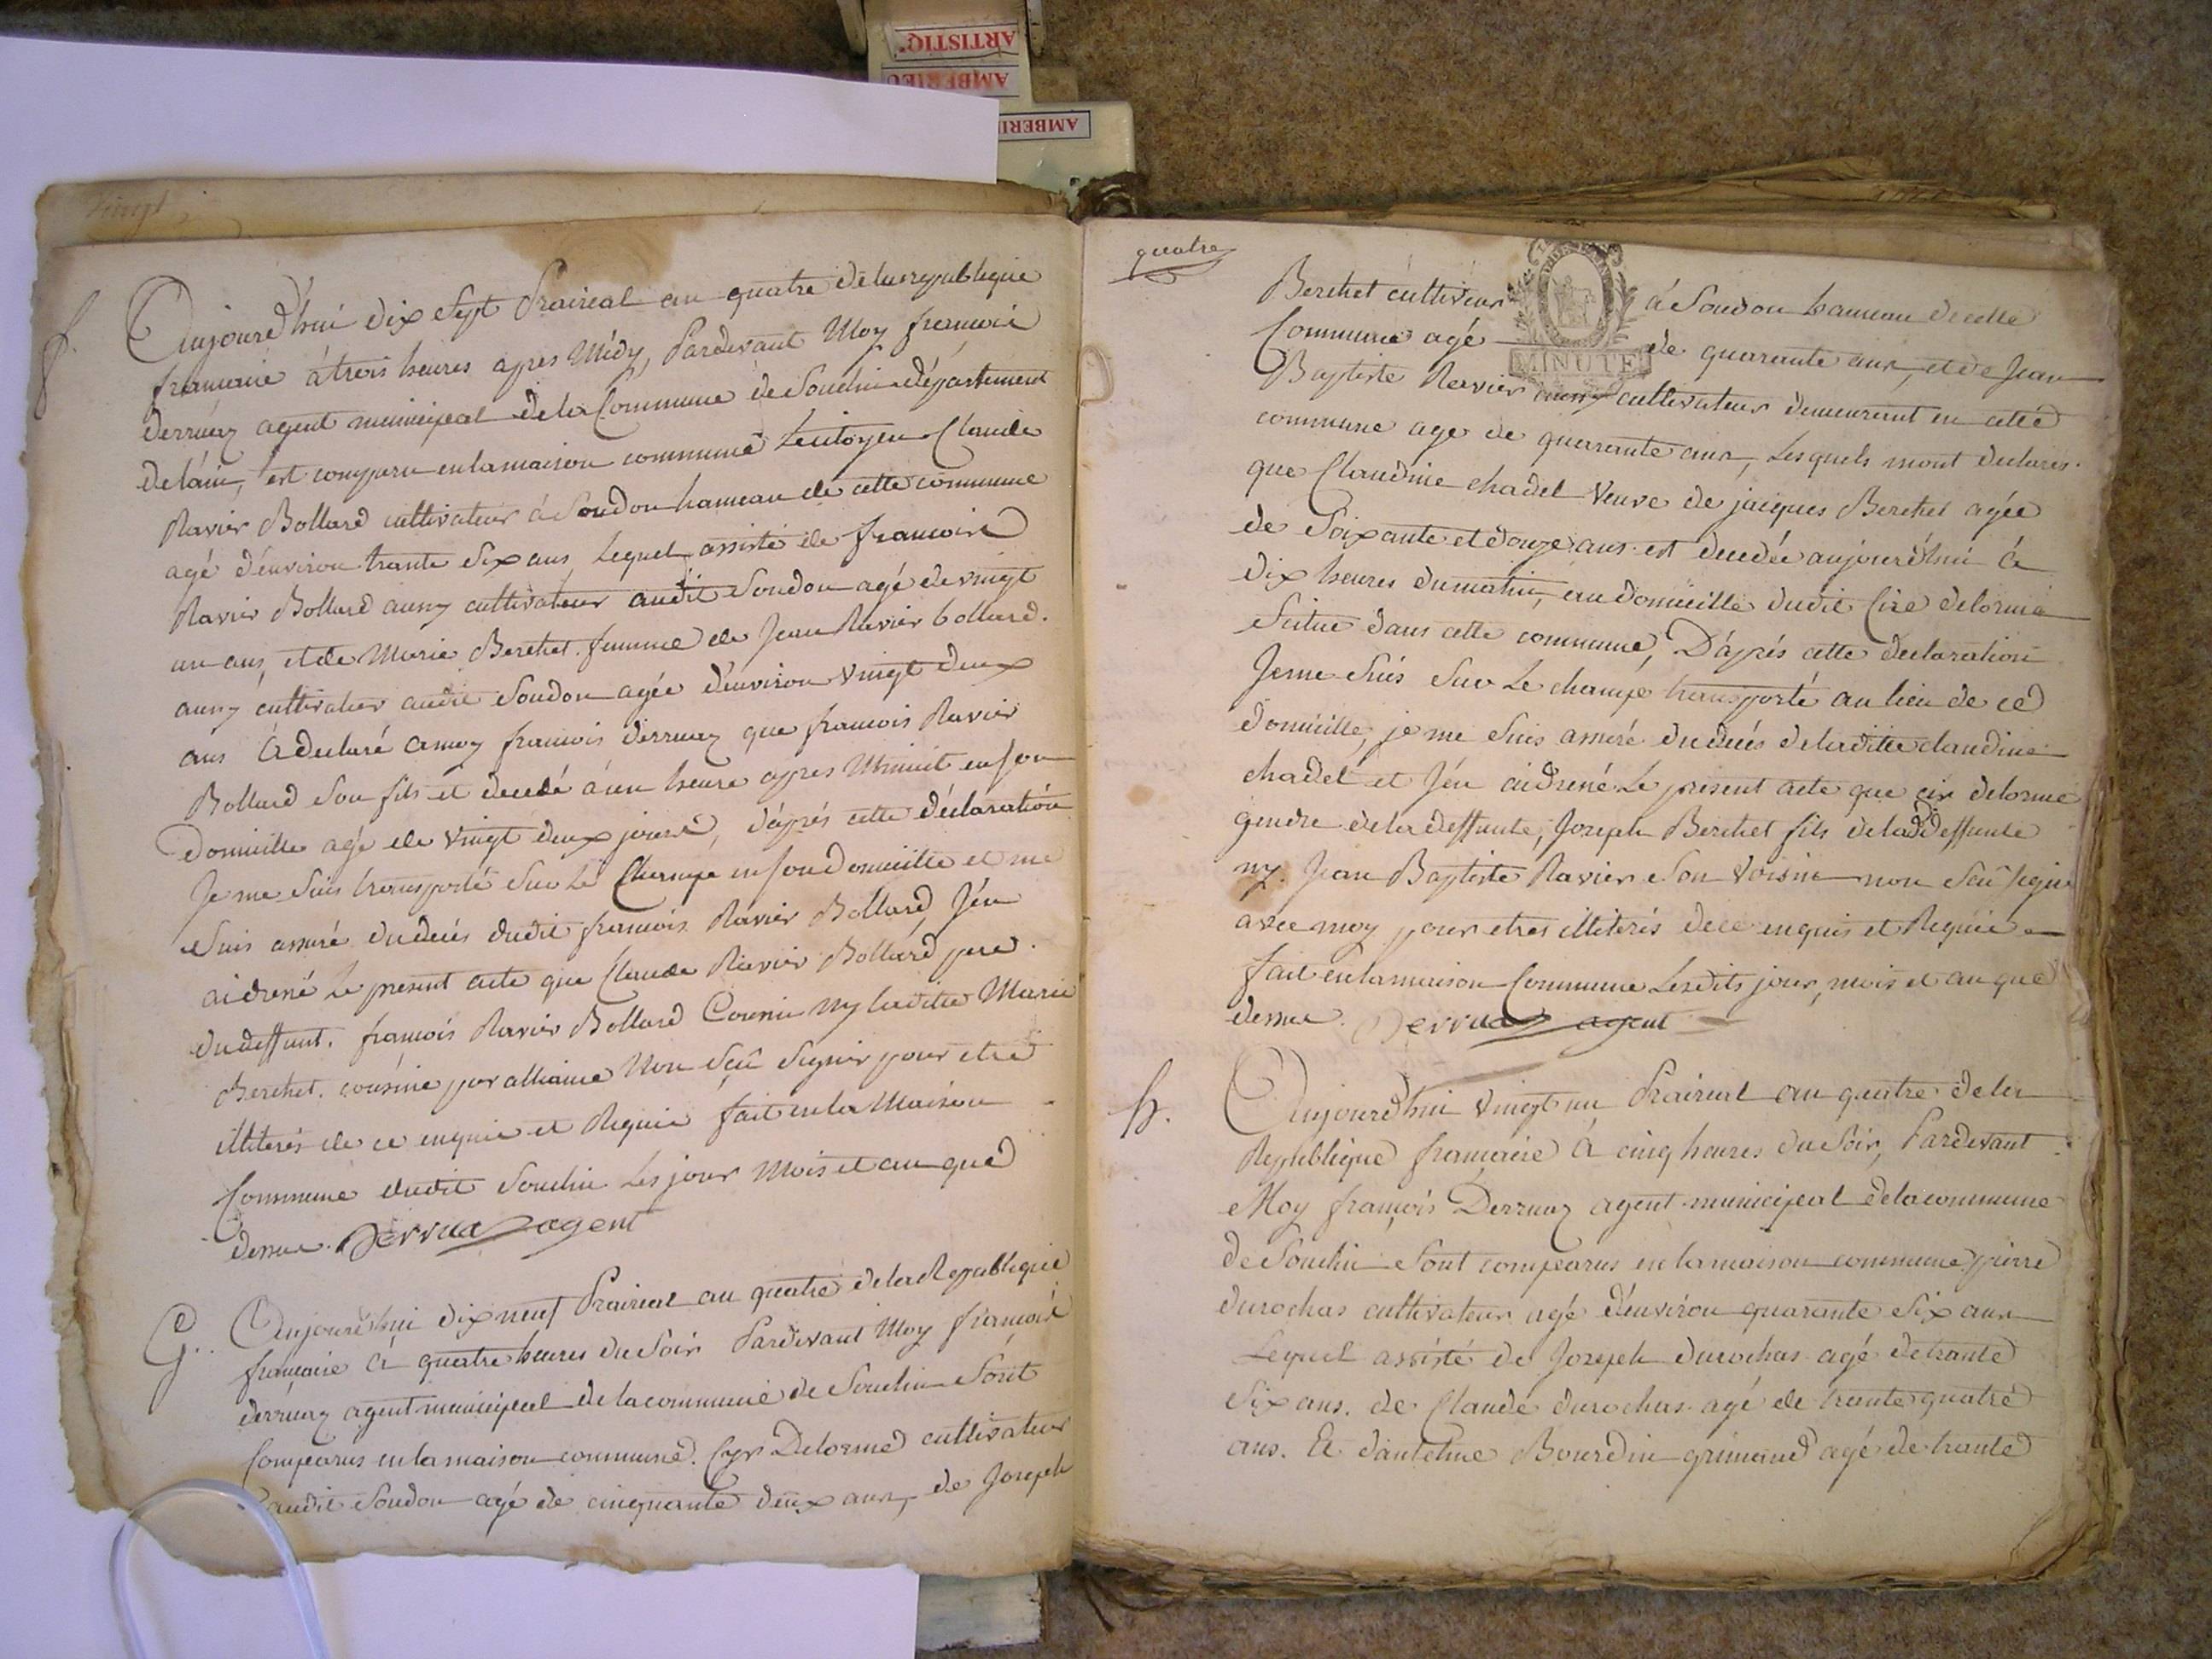 ARTISTIQ
AMBERIEU
AMBERI
vingt
f.
Aujourd'hui dix Sept Prairial an quatre de la republique
francaise à trois heures apres Midy, Pardevant Moy francois
derruaz agent municipal de la Commune de Souclin département
de lain, est comparu en la maison commune Le citoyen Claude
Ravier Bollard cultivateur à Soudon hameau de cette commune
agé d'environ trante Six ans Lequel assisté de francoise
Ravier Bollard aussy cultivateur audit Soudon agé de vingt
un ans, et de Marie Berchet femme de Jean Ravier bollard.
aussy cultivateur audit Soudon agée d'environ vingt deux
ans à declaré a moy francois derruaz que francois Ravier
Bollard Son fils et decedé à un heure apres Minuit en son
Domicille agé de vingt deux jours, d'aprés cette déclaration
Je me Suis transporté Sur Le Champe en son Domicille et me
Suis assuré du decés dudit francois Ravier Bollard, J'en
ai drené Le present acte que Claude Ravier Bollard pere
du deffunt. francois Ravier Bollard Cousin ny laditte Marie
Berchet. cousine par alliance Non Seû Signer pour etre
illiterés de ce enquis et Requis fait en la Maison
Commune dudit Souclin Les jour Mois et an que
dessus. Derruaz agent
G.
Aujourd'hui dix neuf Prairial an quatre de la Republique
francaise à quatre heures du Soir Pardevant Moy francois
derruaz agent municipal de la commune de Souclin Sont
Comparus en la maison commune. Cyr Delorme cultivateur
audit Soudon agé de cinquante deux ans, de Joseph
quatre
Berchet cultiveur à Soudon hameau de cette
MINUTE
Commune agé de quarante ans, et de Jean
Baptiste Ravier aussy cultivateur demeurant en cette
commune age de quarante ans, Lesquels mont declarés.
que Claudine chadel veuve de jacques Berchet agée
de Soixante et douze ans est decedée aujourd'hui à
dix heures du matin, au domicille dudit Cire delorme
Scitue dans cette commune, D'aprés cette declaration
Je me Suis Sur Le champe transporté au lieu de ce
domicille, je me Suis assuré du decés de laditte claudine
chadel et J'en ai drené Le present acte que cir delorme
gendre de la deffunte, Joseph Berchet fils de la deffunte
ny. Jean Baptiste Ravier Son voisin non Seû Signer
avec moy pour etres illiterés de ce enquis et Requis
fait en la maison Commune Lesdits jour, mois et an que
dessus. Derruaz agent
h.
Aujourd'hui vingt un Prairial an quatre de la
Republique francaise à cinq heures du Soir, Pardevant
Moy francois Derruaz agent municipal de la commune
de Souclin Sont comparus en la maison commune pierre
durochas cultivateur agé d'environ quarante Six ans
Lequel assisté de Joseph durochas agé de trante
Six ans. de Claude durochas agé de trante quatre
ans. Et d'antelme Bourdin grimaud agé de trante